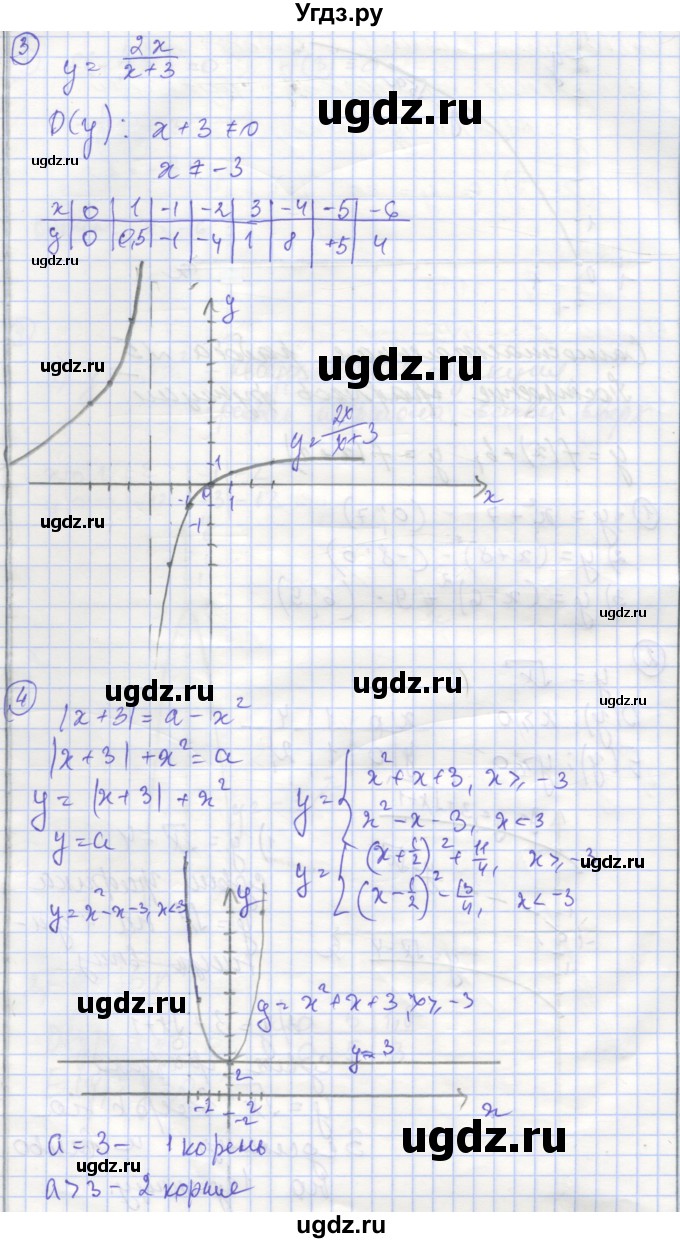 Угдз.ру
③ y = 2x/(x+3)
ugdz.ru
D(y): x+3≠0
ugdz.ru
x ≠ -3
x | 0 | 1 | -1 | -2 | 3 | -4 | -5 | -6
y | 0 | 0,5 | -1 | -4 | 1 | 8 | +5 | 4
ugdz.ru
y
ugdz.ru ugdz.ru
y = 2x/(x+3)
1
-1 0 1 x
ugdz.ru -1 ugdz.ru
ugdz.ru ugdz.ru
ugdz.ru
④ |x+3| = a - x²
|x+3| + x² = a
y = |x+3| + x²
y = { x² + x + 3, x ≥ -3
x² - x - 3, x < 3
y = a
y = { (x + 1/2)² + 11/4, x ≥ -3
(x - 1/2)² - 13/4, x < -3
ugdz.ru
y = x² - x - 3, x < 3
y
ugdz.ru
y = x² + x + 3, x ≥ -3
ugdz.ru
y = 3
2
-2 2 x
-2
a = 3 - 1 корень
ugdz.ru
ugdz.ru
a > 3 - 2 корня
ugdz.ru